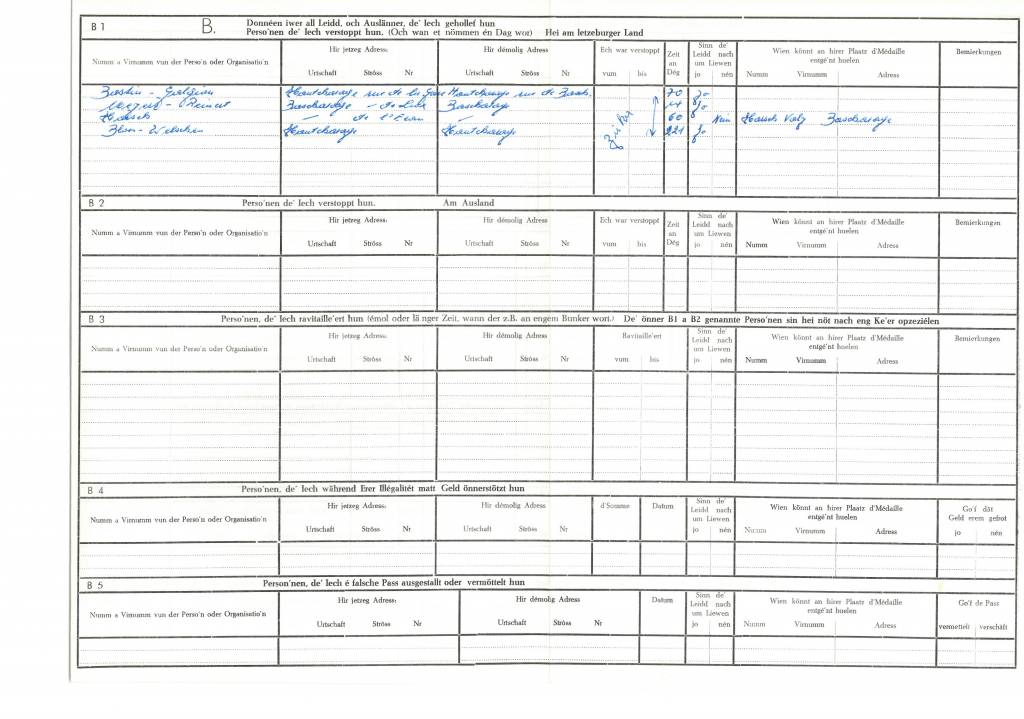 B 1 B. Donnéen iwer all Leidd, och Auslänner, de' Iech gehollef hun
Perso'nen de' Iech verstoppt hun. (Och wan et nömmen én Dag wor) Hei am letzeburger Land
Numm a Virnumm vun der Perso'n oder Organisatio'n
Hir jetzeg Adress:
Urtschaft Ströss Nr
Hir démolig Adress:
Urtschaft Ströss Nr
Ech war verstoppt
vum bis
Zeit
an
Dég
Sinn de'
Leidd nach
um Liewen
jo nén
Wien könnt an hirer Plaatz d'Médaille
entgé'nt huelen
Numm Virnumm Adress
Bemierkungen
Hautcharage rue de la Gare Hautcharage rue de 70 Jo
Reinert Bascharage Bascharage 14 Jo
Hausch 60 Nein Hausch Bascharage
Hautcharage Hautcharage 221 Jo
B 2 Perso'nen de' Iech verstoppt hun. Am Ausland
Numm a Virnumm vun der Perso'n oder Organisatio'n
Hir jetzeg Adress:
Urtschaft Ströss Nr
Hir démolig Adress
Urtschaft Ströss Nr
Ech war verstoppt
vum bis
Zeit
an
Dég
Sinn de'
Leidd nach
um Liewen
jo nén
Wien könnt an hirer Plaatz d'Médaille
entgé'nt huelen
Numm Virnumm Adress
Bemierkungen
B 3 Perso'nen, de' Iech ravitaille'ert hun (émol oder länger Zeit, wann der z.B. an engem Bunker wort.) De' önner B1 a B2 genannte Perso'nen sin hei nöt nach eng Ke'er opzeziélen
Numm a Virnumm vun der Perso'n oder Organisatio'n
Hir jetzeg Adress:
Urtschaft Ströss Nr
Hir démolig Adress:
Urtschaft Ströss Nr
Ravitaille'ert
vum bis
Sinn de'
Leidd nach
um Liewen
jo nén
Wien könnt an hirer Plaatz d'Médaille
entgé'nt huelen
Numm Virnumm Adress
Bemierkungen
B 4 Perso'nen, de' Iech während Erer Illégalitét matt Geld önnerstötzt hun
Numm a Virnumm vun der Perso'n oder Organisatio'n
Hir jetzeg Adress:
Urtschaft Ströss Nr
Hir démolig Adress
Urtschaft Ströss Nr
d'Somme
Datum
Sinn de'
Leidd nach
um Liewen
jo nén
Wien könnt an hirer Plaatz d'Médaille
entgé'nt huelen
Numm Virnumm Adress
Go'f dät
Geld erem gefrot
jo nén
B 5 Person'nen, de' Iech é falsche Pass ausgestallt oder vermöttelt hun
Numm a Virnumm vun der Perso'n oder Organisatio'n
Hir jetzeg Adress:
Urtschaft Ströss Nr
Hir démolig Adress
Urtschaft Ströss Nr
Datum
Sinn de'
Leidd nach
um Liewen
jo nén
Wien könnt an hirer Plaatz d'Médaille
entgé'nt huelen
Numm Virnumm Adress
Go'f de Pass
vermettelt verschäft